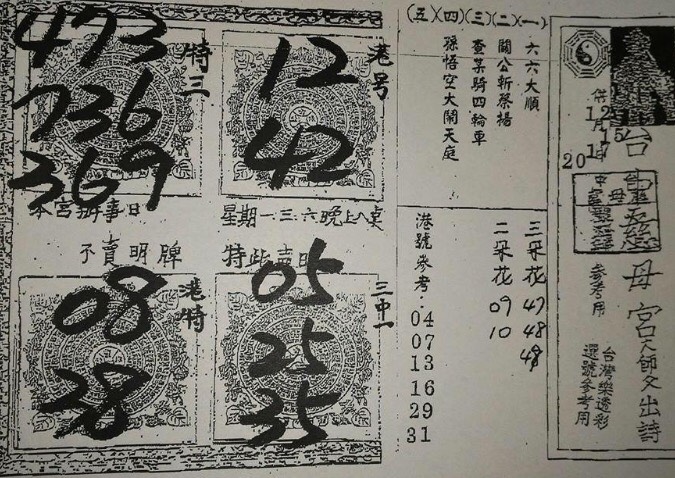 台靈慈母宮天師文出詩
供
12月15
2017年
參考用
台灣樂透彩
選號參考用
(一)六六大順
(二)關公斬蔡揚
(三)查某騎四輪車
(四)孫悟空大鬧天庭
(五)
三朵花 47 48 49
二朵花 09 10
港號參考:04 07 13 16 29 31
港号
12
42
特三
473
736
369
本宮辦事日 星期一三六晚上八点
不賣明牌 特此声明
三中一
05
25
35
港特
08
38